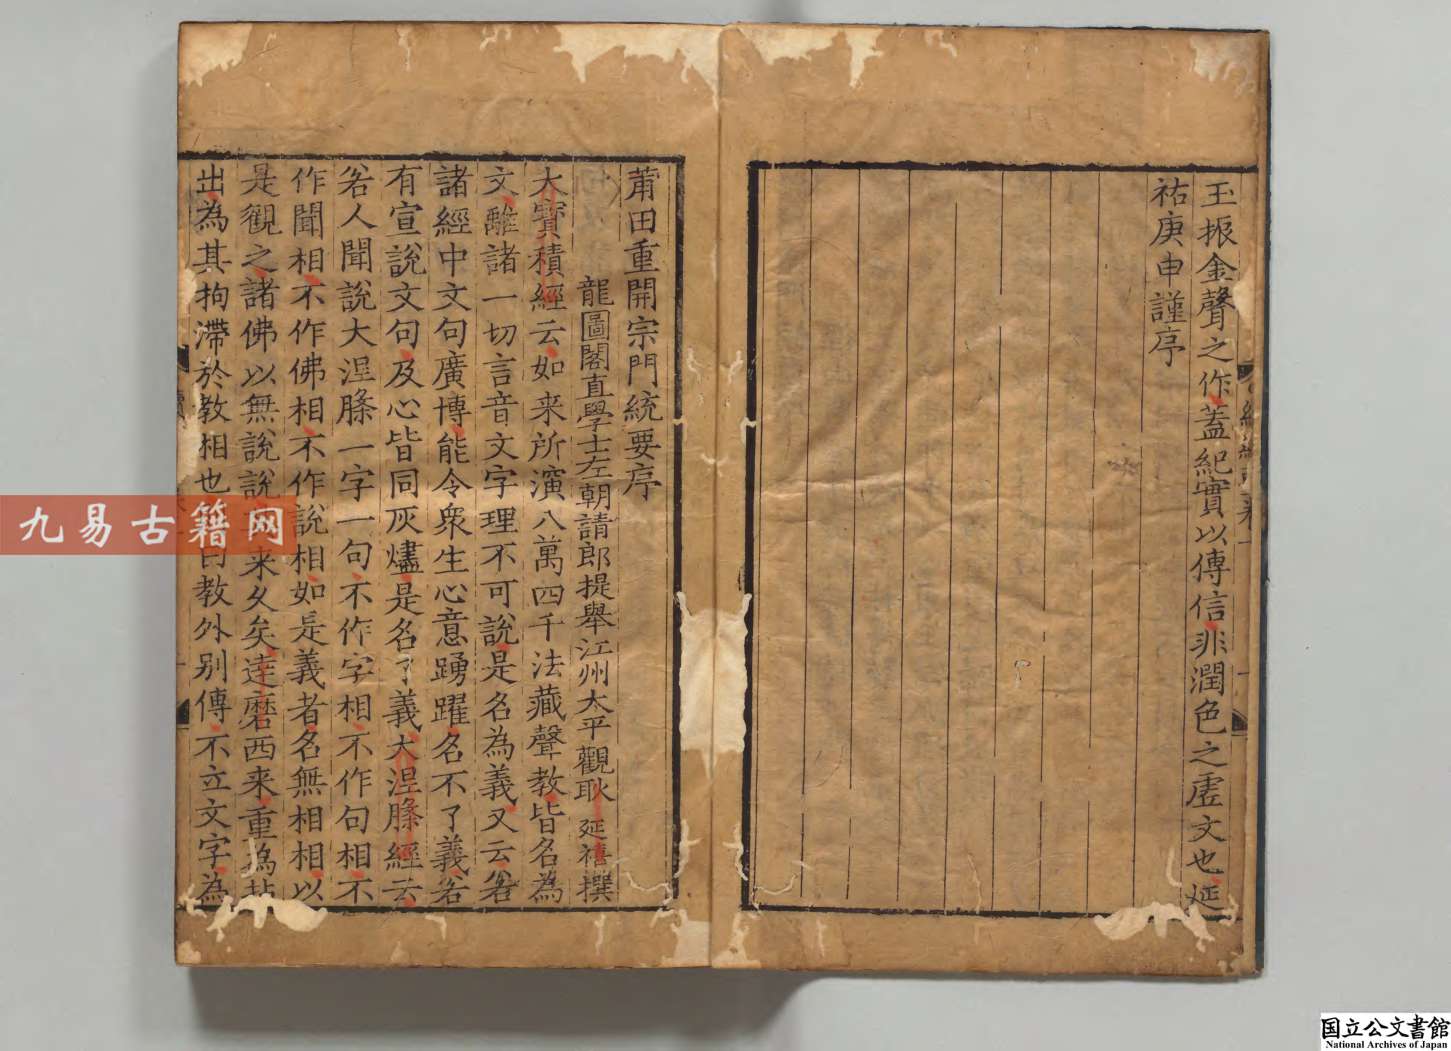 玉振金聲之作蓋紀實以傳信非潤色之虛文也延
祐庚申謹序
莆田重開宗門統要序
龍圖閣直學士左朝請郎提舉江州太平觀耿 延禧撰
大寶積經云如来所演八萬四千法藏聲教皆名為
文離諸一切言音文字理不可說是名為義又云若
諸經中文句廣博能令衆生心意踴躍名不了義若
有宣說文句及心皆同灰燼是名了義大涅槃經云
若人聞說大涅槃一字一句不作字相不作句相不
作聞相不作佛相不作說相如是義者名無相相以
是觀之諸佛以無說說 来久矣達磨西来重為
出為其拘滯於教相也 曰教外别傳不立文字為
九易古籍网
国立公文書館
National Archives of Japan